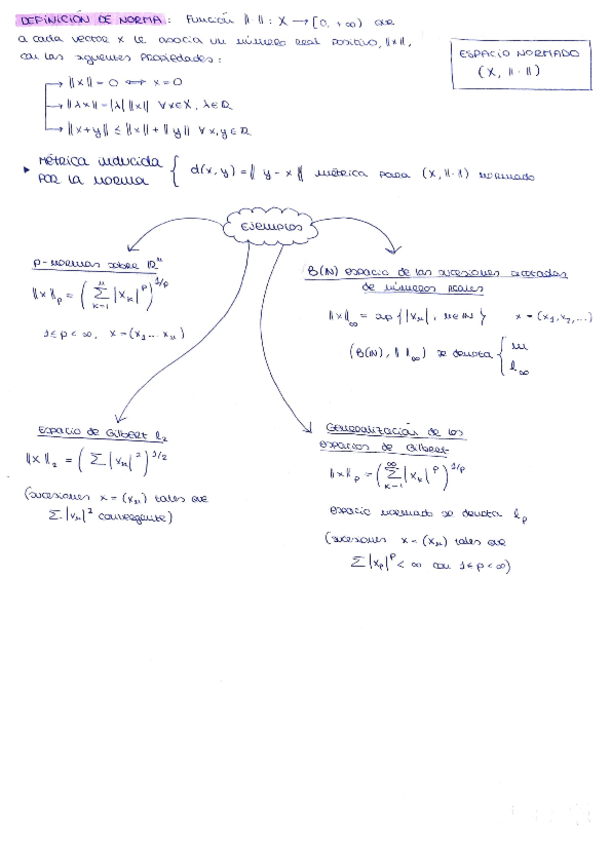 DEFINICIÓN DE NORMA: Función ||·|| : X → [0, +∞) que
a cada vector x le asocia un número real positivo, ||x||,
con las siguientes propiedades:
ESPACIO NORMADO
(X, ||·||)
→ ||x|| = 0 ⟺ x = 0
→ ||λx|| = |λ| ||x|| ∀x∈X, λ∈ℝ
→ ||x+y|| ≤ ||x|| + ||y|| ∀x,y∈ℝ
▸ Métrica inducida
por la norma { d(x,y) = || y - x || métrica para (X, ||·||) normado
Ejemplos
p-normas sobre ℝⁿ
||x||_p = ( Σ_{k=1}^{n} |x_k|^p )^{1/p}
1 ≤ p < ∞, x = (x_1 ... x_n)
B(ℕ) espacio de las sucesiones acotadas
de números reales
||x||_∞ = sup { |x_n|, n∈ℕ } x = (x_1, x_2, ...)
(B(ℕ), || ||_∞) se denota { m
ℓ_∞
Espacio de Gilbert ℓ_2
||x||_2 = ( Σ |x_n|^2 )^{1/2}
(sucesiones x = (x_n) tales que
Σ |x_n|^2 convergente)
Generalización de los
espacios de Gilbert
||x||_p = ( Σ_{k=1}^{∞} |x_k|^p )^{1/p}
espacio normado se denota ℓ_p
(sucesiones x = (x_n) tales que
Σ |x_p|^p < ∞ con 1 ≤ p < ∞)